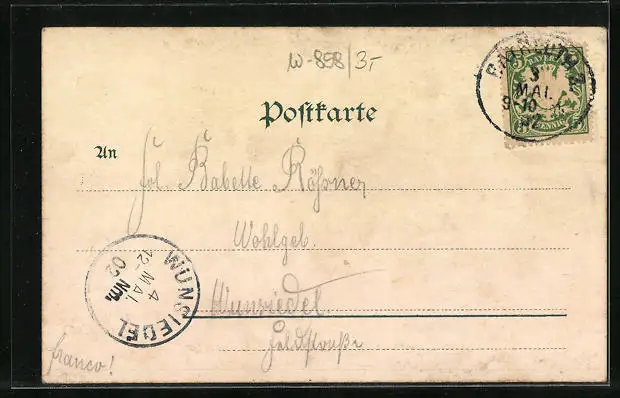 W-898/3-
BAYERN
5 PFENNIG
3
MAI.
9-10
02
Postkarte
An
Frl. Babette Rößner
Wohlgeb.
Wunsiedel.
Feldstraße
WUNSIEDEL
4 MAI.
12- Nm.
02
franco!